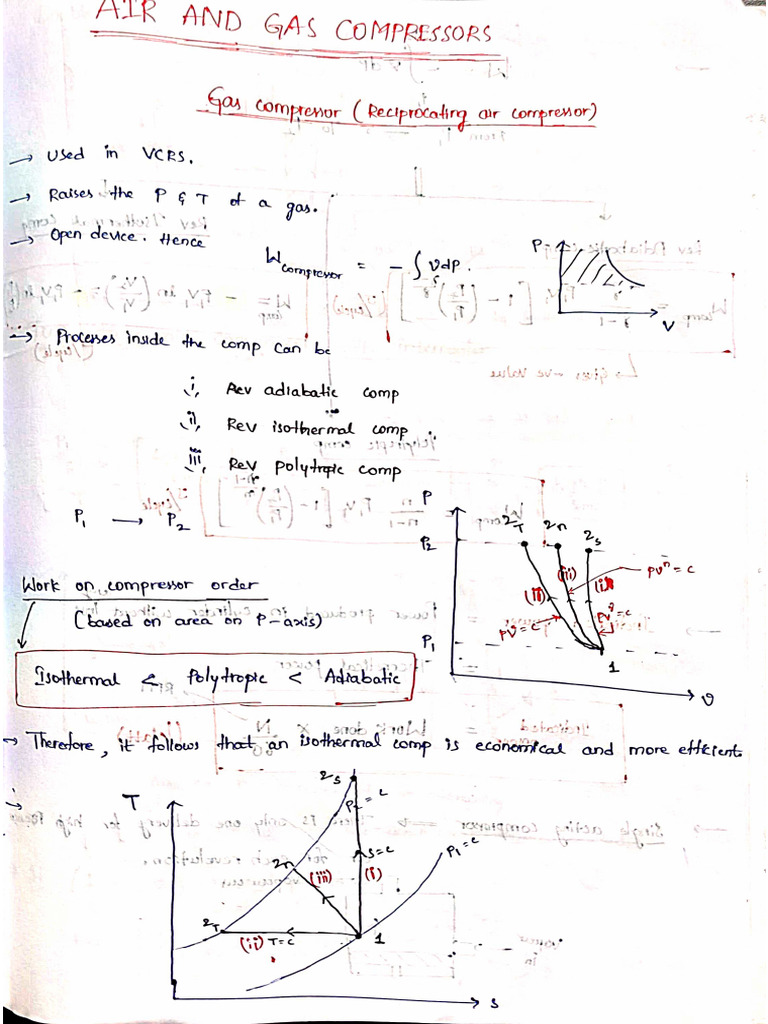 AIR AND GAS COMPRESSORS
Gas compressor (Reciprocating air compressor)
→ Used in VCRS.
→ Raises the P & T of a gas.
→ Open device. Hence
W compressor = - ∫ vdp.
P
V
→ Processes inside the comp can be
i, Rev adiabatic comp
ii, Rev isothermal comp
iii, Rev polytropic comp
P1 → P2
Work on compressor order
(based on area on P-axis)
Isothermal < Polytropic < Adiabatic
P
P2
P1
2T
2n
2s
(ii)
(iii)
(i)
pvⁿ = c
pv = c
pv^γ = c
1
v
→ Therefore, it follows that an isothermal comp is economical and more efficient.
→
T
2s
P2 = c
2n
(iii)
s=c
(i)
P1 = c
2T
(ii)
T=c
1
s